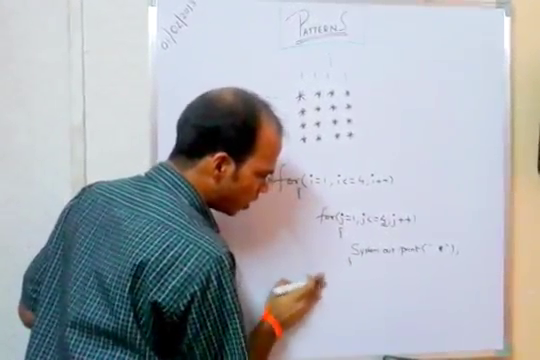 PATTERNS
* * * *
* * * *
* * * *
* * * *
for(i=1, i<=4, i++)
{
for(j=1, j<=4, j++)
{
System.out.print(" * "),